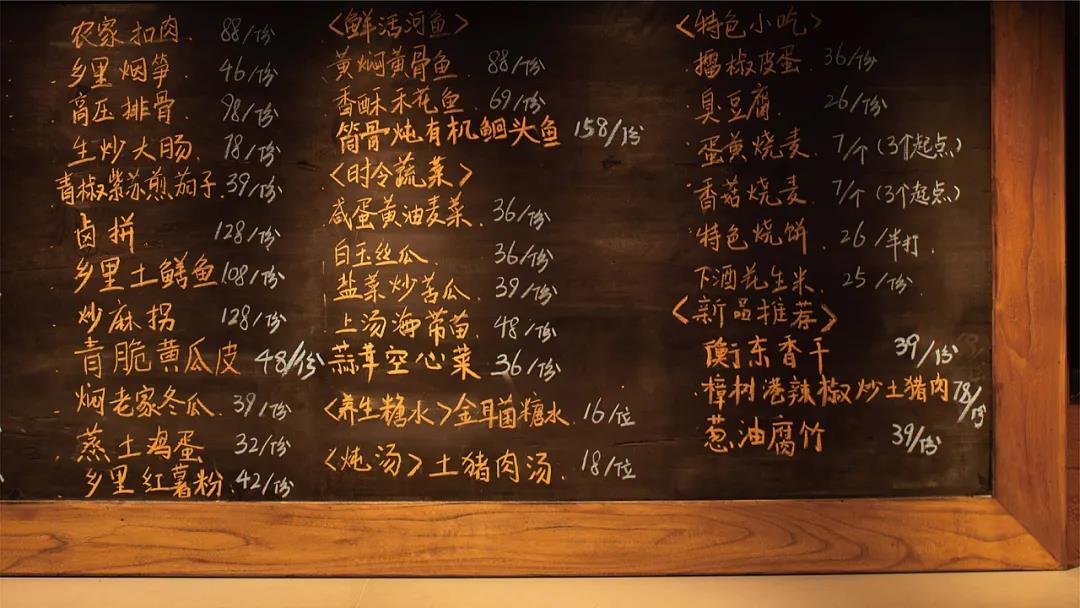 农家扣肉 88/份
乡里烟笋 46/份
高压排骨 98/份
生炒大肠 78/份
青椒紫苏煎茄子 39/份
卤拼 128/份
乡里土鳝鱼 108/份
炒麻拐 128/份
青脆黄瓜皮 48/份
焖老家冬瓜 39/份
蒸土鸡蛋 32/份
乡里红薯粉 42/份
<鲜活河鱼>
黄焖黄骨鱼 88/份
香酥禾花鱼 69/份
筒骨炖有机鮰头鱼 158/份
<时令蔬菜>
咸蛋黄油麦菜 36/份
白玉丝瓜 36/份
盐菜炒苦瓜 39/份
上汤海带苗 48/份
蒜茸空心菜 36/份
<养生糖水>金耳菌糖水 16/位
<炖汤>土猪肉汤 18/位
<特色小吃>
擂椒皮蛋 36/份
臭豆腐 26/份
蛋黄烧麦 7/个(3个起点)
香菇烧麦 7/个(3个起点)
特色烧饼 26/半打
下酒花生米 25/份
<新品推荐>
衡东香干 39/份
樟树港辣椒炒土猪肉 78/份
葱油腐竹 39/份